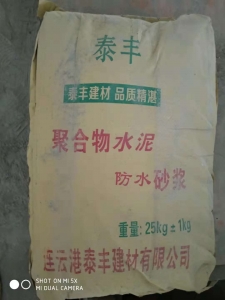 泰丰
泰丰建材 品质精湛
聚合物水泥
防水砂浆
重量: 25kg±1kg
连云港泰丰建材有限公司
SHOT ON MI 5X
MI DUAL CAMERA